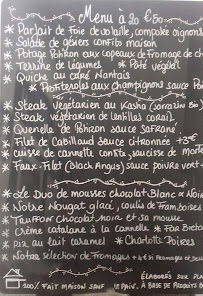 Menu à 20 €50
* Parfait de foie de volaille, composée oignons
* Salade de gésiers confits maison
* Potage Potiron aux copeaux de Fromage de ch
* Terrine de légumes * Pâté végétal
* Quiche au curé Nantais
* Profiteroles aux champignons sauce Po
* Steak végétarien au Kasha (Sarrazin Bio)
* Steak végétarien de lentilles corail
* Quenelle de Potiron sauce Safranée
* Filet de Cabillaud sauce citronnée +3€
* cuisse de cannette confite, saucisse de morte
* Faux-Filet (Black Angus) sauce poivre vert
* Le Duo de mousses chocolat Blanc et Noi
* Notre Nougat glacé, coulis de Framboises
* Truffon Chocolat noir et sa mousse
* Crème catalane à la cannelle * Far Breto
* Riz au lait caramel * Charlotte Poires
* Notre sélection de Fromages
100% FAIT MAISON SAUF le PAIN.
ÉLABORÉS SUR PLA
À BASE DE PRODUITS B